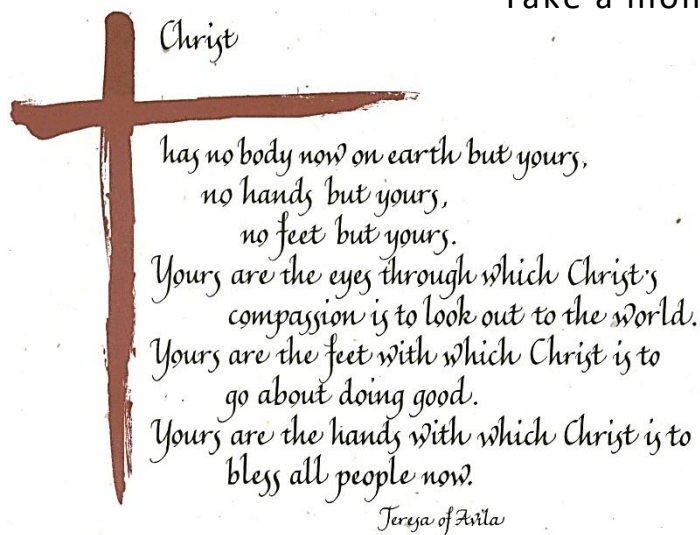 Take a mom
Christ
has no body now on earth but yours,
no hands but yours,
no feet but yours.
Yours are the eyes through which Christ's
compassion is to look out to the world.
Yours are the feet with which Christ is to
go about doing good.
Yours are the hands with which Christ is to
bless all people now.
Teresa of Avila